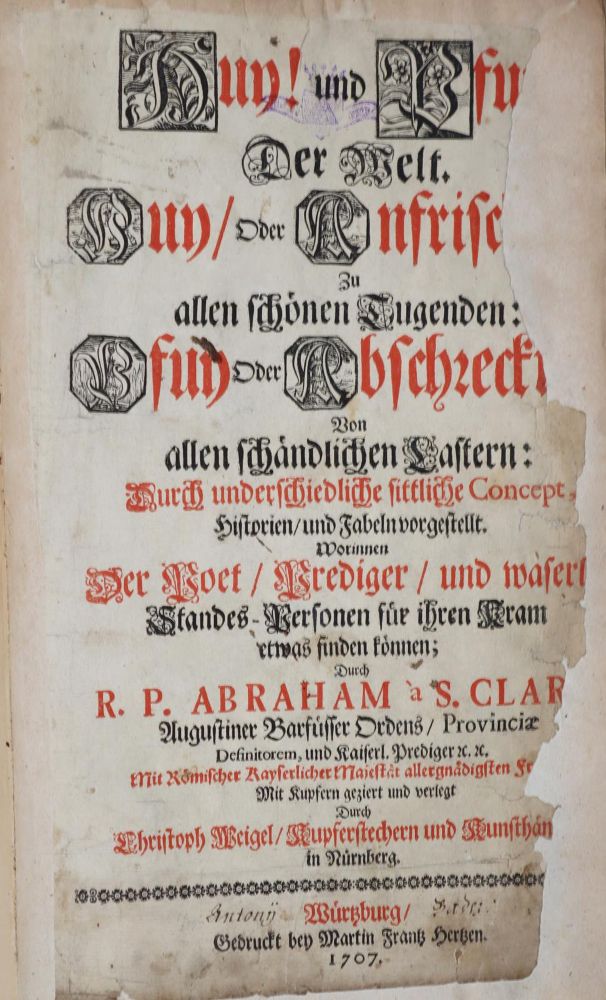 Huy! und Pfu
Der Welt.
Huy/ Oder Anfrisc
Zu
allen schönen Tugenden:
Pfuy Oder Abschreck
Von
allen schändlichen Lastern:
Durch underschiedliche sittliche Concept,
Historien/ und Fabeln vorgestellt.
Worinnen
Der Poet / Prediger / und waserl
Standes-Personen für ihren Kram
etwas finden können;
Durch
R. P. ABRAHAM à S. CLAR
Augustiner Barfüsser Ordens / Provinciæ
Definitorem, und Kaiserl. Prediger ꝛc. ꝛc.
Mit Römischer Kayserlicher Majestät allergnädigsten Fr
Mit Kupfern geziert und verlegt
Durch
Christoph Weigel / Kupferstechern und Kunsthän
in Nürnberg.
Antonij Würtzburg /
Gedruckt bey Martin Frantz Hertzen.
1707.